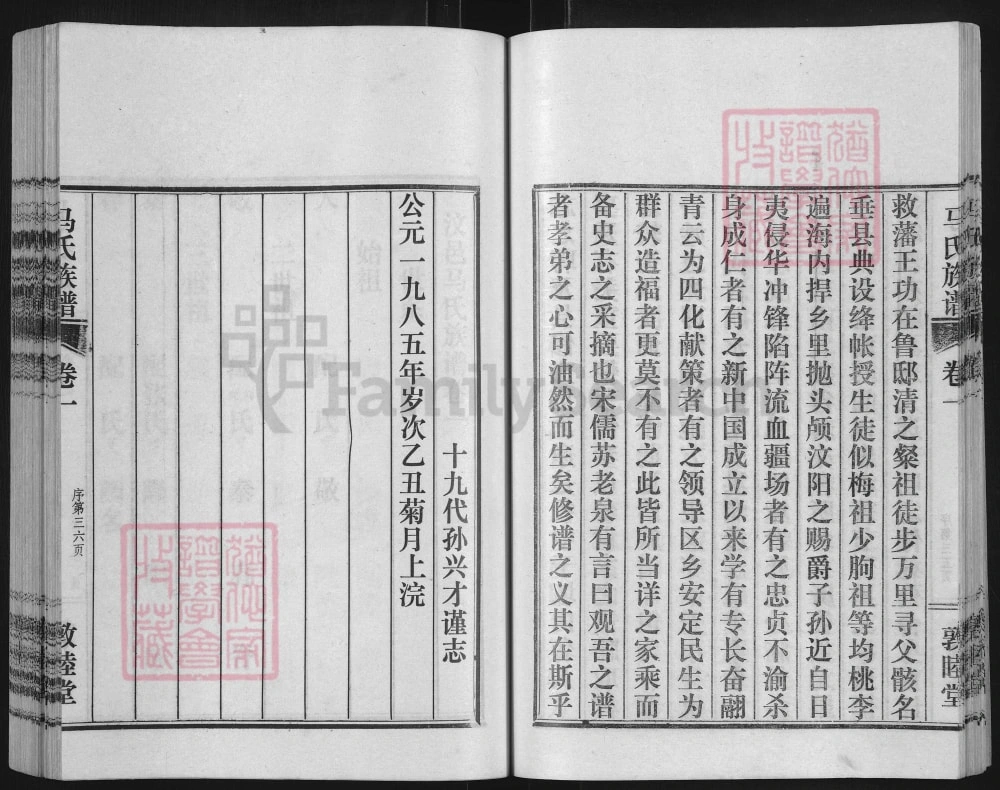 马氏族谱 卷一 敦睦堂
救藩王功在鲁邸清之粲祖徒步万里寻父骸名
垂县典设绛帐授生徒似梅祖少朐祖等均桃李
遍海内捍乡里抛头颅汶阳之赐爵子孙近自日
夷侵华冲锋陷阵流血疆场者有之忠贞不渝杀
身成仁者有之新中国成立以来学有专长奋翮
青云为四化献策者有之领导区乡安定民生为
群众造福者更莫不有之此皆所当详之家乘而
备史志之采摘也宋儒苏老泉有言曰观吾之谱
者孝弟之心可油然而生矣修谱之义其在斯乎
十九代孙兴才谨志
公元一九八五年岁次乙丑菊月上浣
马氏族谱 卷一 序第三六页 敦睦堂
FamilySearch
谱学会
收藏
谱学会
收藏